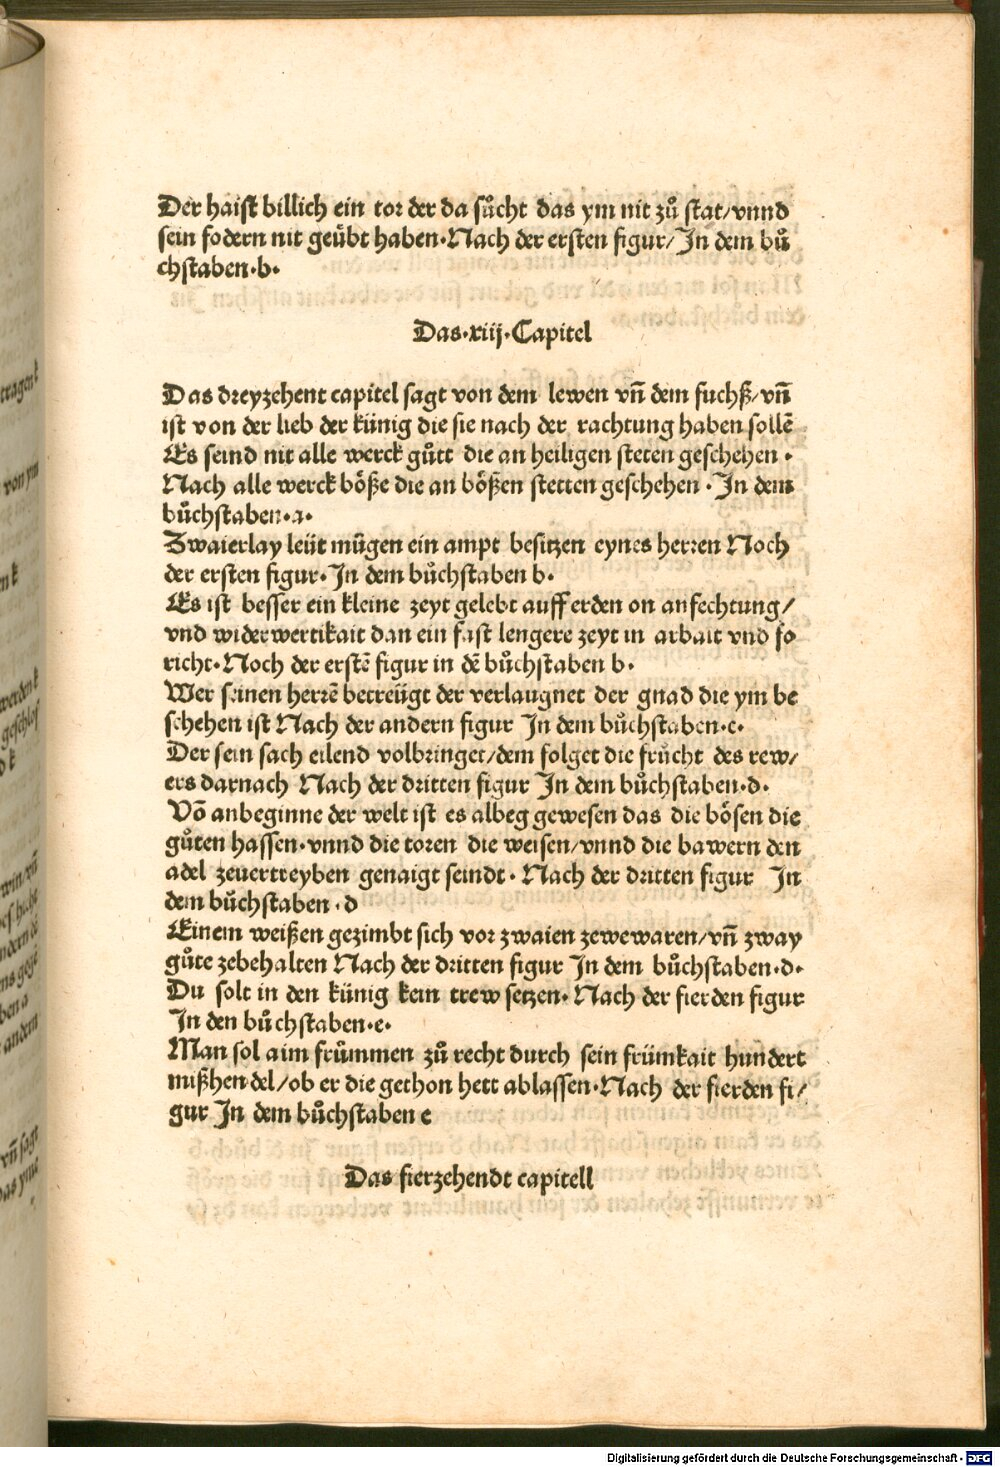 Der haist billich ein tor der da sůcht das ym nit zů stat/vnnd
sein fodern nit geübt haben·Nach der ersten figur/In dem bů
chstaben·b·
Das·xiij·Capitel
Das dreyzehent capitel sagt von dem lewen vñ dem fuchß/vñ
ist von der lieb der künig die sie nach der rachtung haben sollē
Es seind nit alle werck gůtt die an heiligen steten geschehen·
Nach alle werck böße die an bößen stetten geschehen·In dem
bůchstaben·a·
Zwaierlay leüt mügen ein ampt besitzen eynes herren Noch
der ersten figur·In dem bůchstaben b·
Es ist besser ein kleine zeyt gelebt auff erden on anfechtung/
vnd widerwertikait dan ein fast lengere zeyt in arbait vnd fo
richt·Noch der erstē figur in dē bůchstaben b·
Wer seinen herrē betreügt der verlaugnet der gnad die ym be
schehen ist Nach der andern figur In dem bůchstaben·c·
Der sein sach eilend volbringet/dem folget die frücht des rew/
ers darnach Nach der dritten figur In dem bůchstaben·d·
Võ anbeginne der welt ist es albeg gewesen das die bösen die
gůten hassen·vnnd die toren die weisen/vnnd die bawern den
adel zeuertreyben genaigt seindt·Nach der dritten figur In
dem bůchstaben·d
Einem weißen gezimbt sich vor zwaien zewewaren/vñ zway
gůte zebehalten Nach der dritten figur In dem bůchstaben·d·
Du solt in den künig kein trew setzen·Nach der fierden figur
In den bůchstaben·e·
Man sol aim frümmen zů recht durch sein frümkait hundert
mißhendel/ob er die gethon hett ablassen·Nach der fierden fi/
gur In dem bůchstaben e
Das fierzehendt capitell
tragen k
von ym
werden k
geschlos
vñ sagt
Digitalisierung gefördert durch die Deutsche Forschungsgemeinschaft - DFG